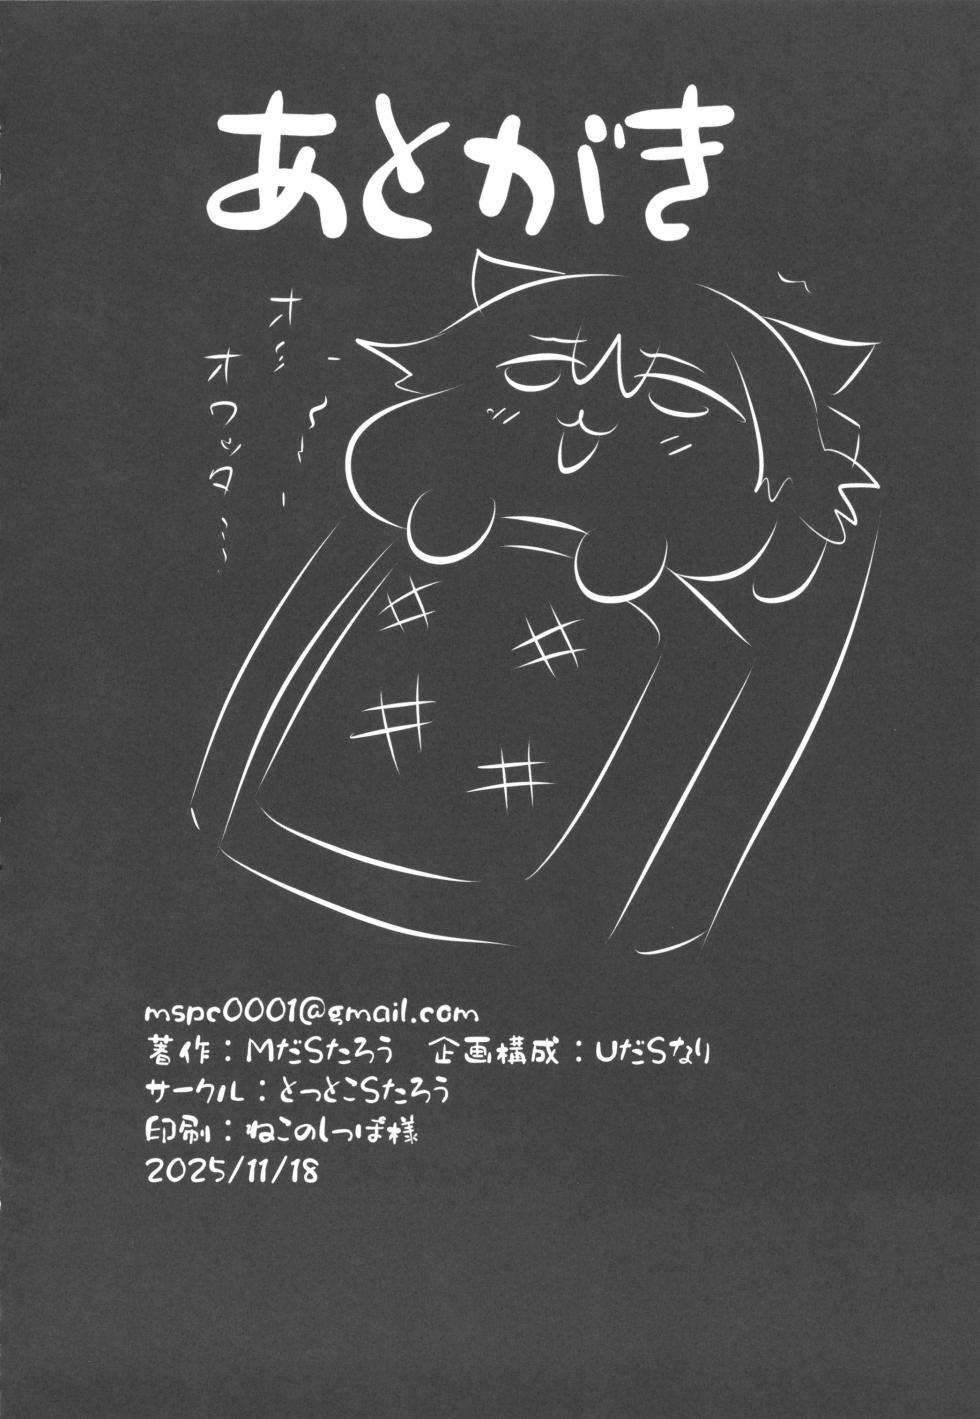 あとがき
オワッタ…
mspc0001@gmail.com
著作：MだSたろう　企画構成：UだSなり
サークル：とっとこSたろう
印刷：ねこのしっぽ様
2025/11/18